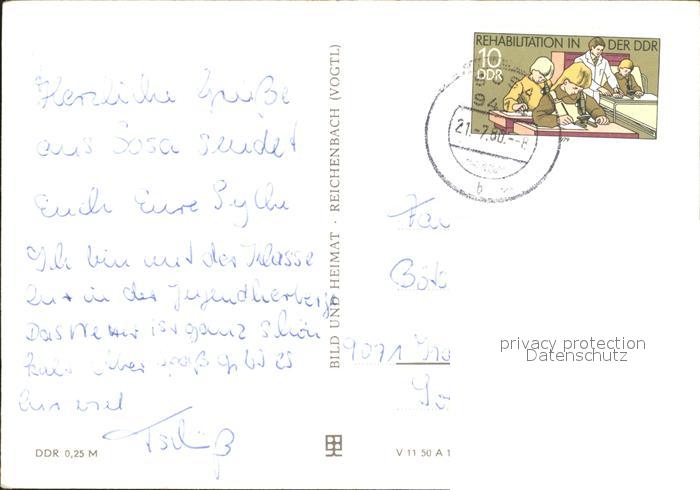 Herzliche Grüße
aus Sosa sendet
Euch Eure Sylke
Ich bin mit der Klasse
in der Jugendherberge
Das Wetter ist ganz schön
kalt Aber spaß gibt es
viel
Tschüß
DDR 0,25 M
BILD UND HEIMAT · REICHENBACH (VOGTL)
REHABILITATION IN DER DDR
10
DDR
94
21.-7.80.-8
b
Fa
9071
privacy protection
Datenschutz
V 11 50 A 1